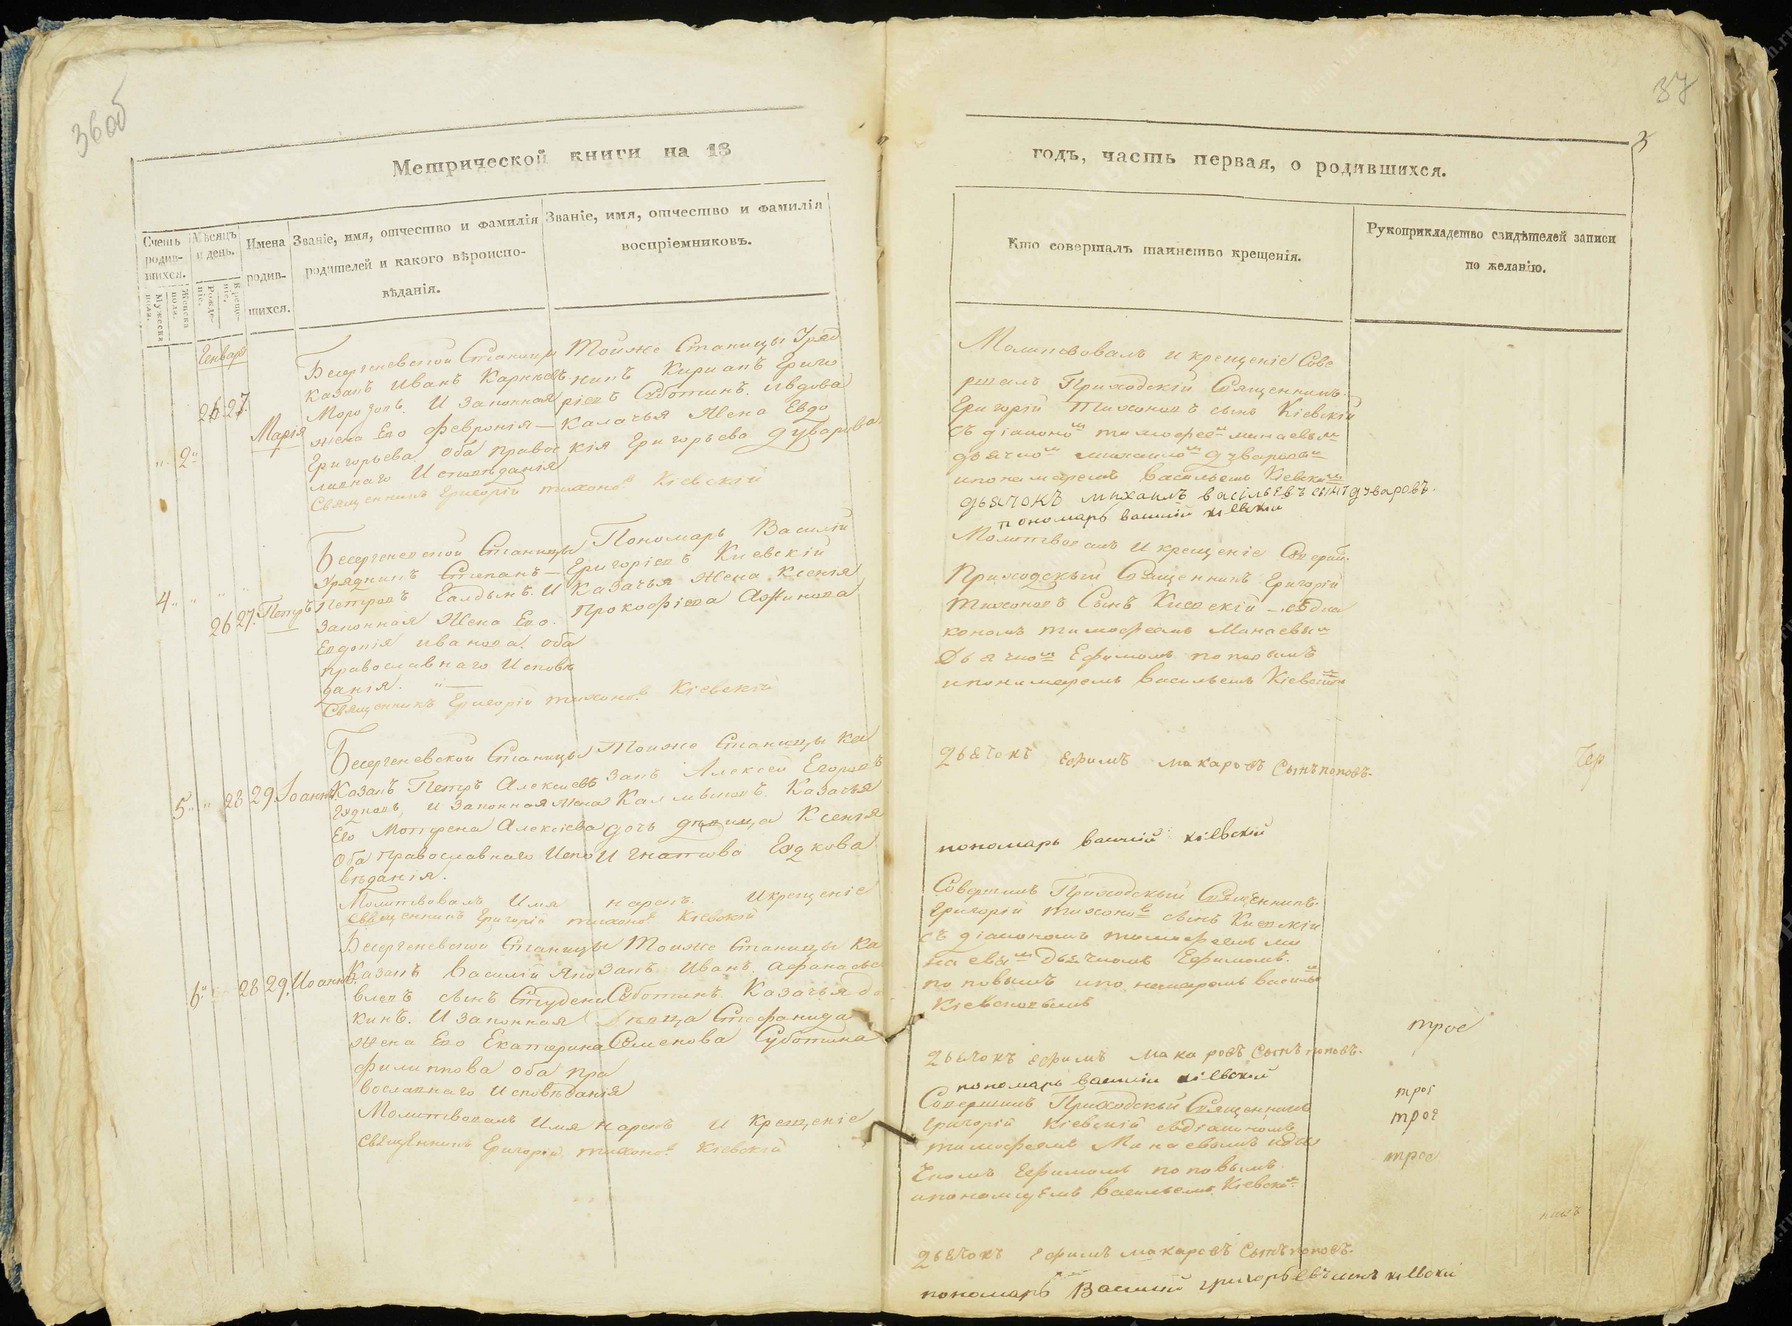 36об
37
Метрической книги на 18
годъ, часть первая, о родившихся.
Счетъ родившихся.
Мужеска пола.
Женска пола.
Мѣсяцъ и день.
Рожденіе.
Крещеніе.
Имена родившихся.
Званіе, имя, отчество и фамилія
родителей и какого вѣроиспо-
вѣданія.
Званіе, имя, отчество и фамилія
воспріемниковъ.
Кто совершалъ таинство крещенія.
Рукоприкладство свидѣтелей записи
по желанію.
Генваря
2 26 27 Марія
Бесергеневской Станицы
Казакъ Иванъ
Морозовъ. И Законная
жена Его Февронія
Григорьева оба правос
лавнаго Исповѣданія
Священникъ Григорій Тихонов Кіевскій
Тойже Станицы Уряд
никъ Кирианъ Григо
ріевъ Суботинъ. Ивдова
Казачья Жена Евдо
кія Григорьева Дударова
Молитвовалъ и крещеніе Сове
ршалъ Приходскій Священникъ
Григорій Тихоновъ сынъ Кіевскій
дьячокъ михаилъ васильевъ сынъ дударовъ.
пономарь василій кіевскій
4 26 27 Петръ
Бесергеневской Станицы
Урядникъ Степанъ
Петровъ Галдинъ. И
Законная Жена Его.
Евдокія Иванова. Оба
православнаго Исповѣ
данія.
Священникъ Григорій Тихонов Кіевскій
Пономарь Василій
Григоріевъ Киевскій
Казачья Жена Ксенія
Прокофіева Афинова
Молитвовалъ И крещеніе Совершил
Приходскый Священникъ Григорій
Тихоновъ Сынъ Киевскій съ Діа
кономъ Тимофеемъ Минаевым
Дьячком Ефимомъ Поповымъ
ипономаремъ Васильемъ Кіевским
дьячокъ ефимъ макаровъ сынъ поповъ.
пономарь василій кіевскій
5 28 29 Іоаннъ
Бесергеневской Станицы
Казакъ Петръ Алексиевъ
Гудковъ, И Законная Жена
Его Мотрена Алексіева
Оба Православнаго Испо
вѣданія.
Молитвовалъ Имя нарекъ Икрещеніе
Священникъ Григорій Тихонов Кіевскій
Тойже Станицы Ка
закъ Алексей Егоровъ
Калмыковъ. Казачья
дочь дѣвица Ксенія
Игнатова Гудкова
Совершилъ Приходскый Священникъ
Григорій Тихонов сынъ Киевскій
съ діакономъ Тимофеемъ Ми
наевым Дьячкомъ Ефимомъ.
Поповымъ ипономаремъ Василіем
Кіевскимъ
дьячокъ ефимъ макаровъ сынъ поповъ.
пономарь василій кіевскій
6 28 29 Иоаннъ
Бесергеневской Станицы
Казакъ Василій Яко
влевъ сынъ Студени
кинъ. И Законная
Жена Его Екатерина
Филиппова оба пра
вославнаго Исповѣданія
Молитвовалъ Имя Нарекъ И Крещеніе
Священникъ Григорій Тихонов Кіевскій
Тойже Станицы Ка
закъ Иванъ Афанасьев
Суботинъ Казачья до
Дѣвица Стефанида
Семенова Суботина
Совершилъ Приходскый Священникъ
Григорій Кіевскій съ Діакономъ
Тимофеемъ Минаевымъ идья
чкомъ Ефимомъ Поповымъ
ипономаремъ Васильемъ Кіевским
дьячокъ ефимъ макаровъ сынъ поповъ.
пономарь Василий григорьевъ сынъ кіевский
трое
трое
трое
трое